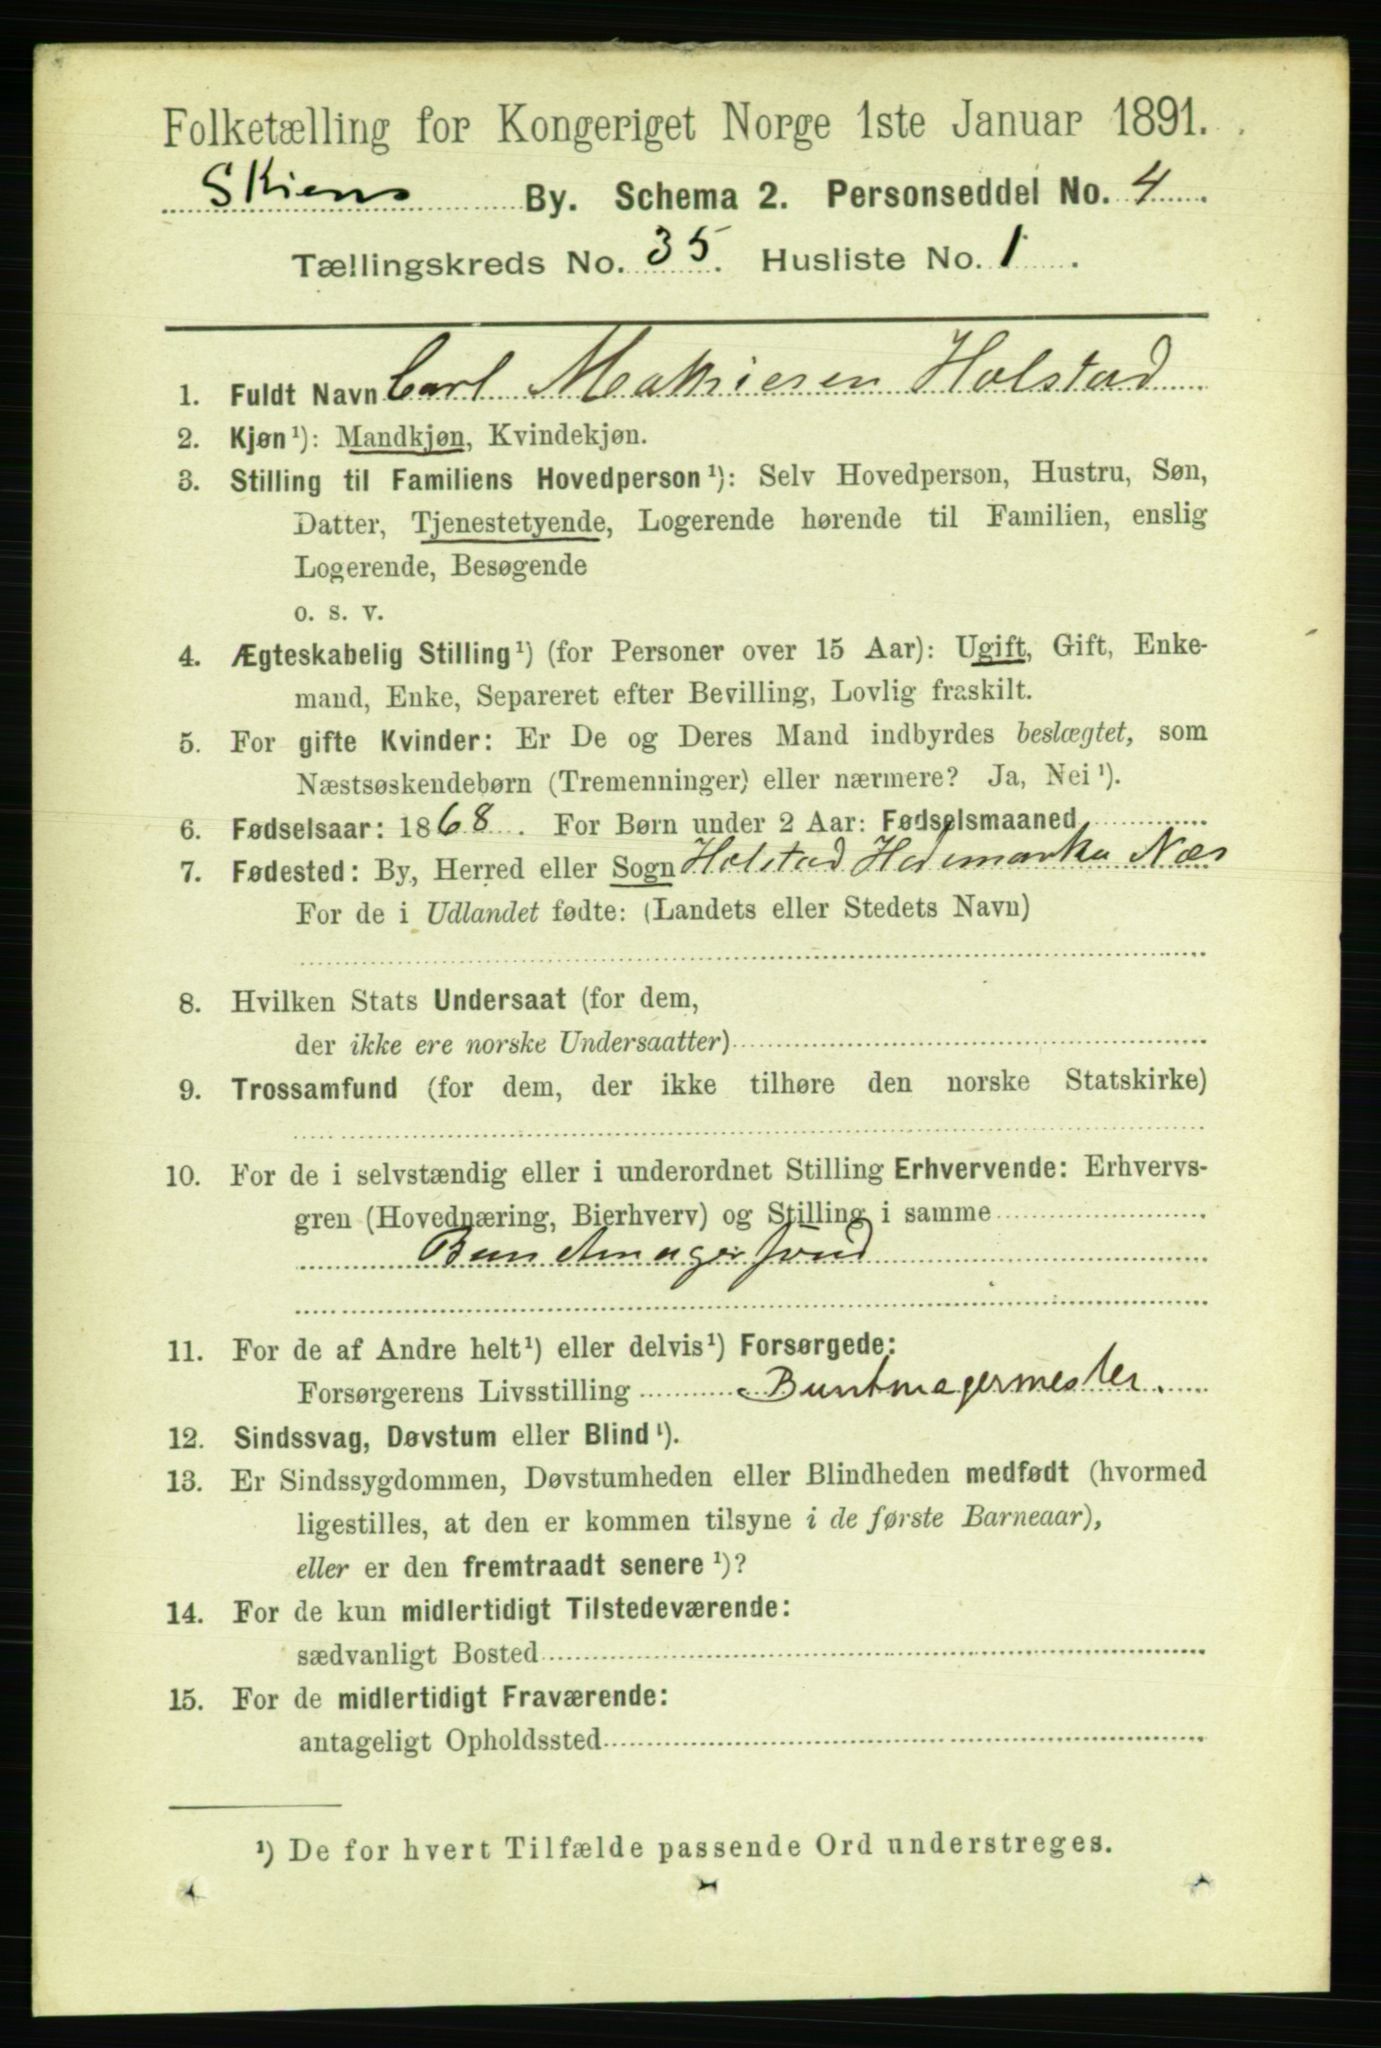 Folketælling for Kongeriget Norge 1ste Januar 1891.
Skiens By. Schema 2. Personseddel No. 4
Tællingskreds No. 35. Husliste No. 1.
1. Fuldt Navn Carl Mathiesen Holstad
2. Kjøn¹): Mandkjøn, Kvindekjøn.
3. Stilling til Familiens Hovedperson¹): Selv Hovedperson, Hustru, Søn,
Datter, Tjenestetyende, Logerende hørende til Familien, enslig
Logerende, Besøgende
o. s. v.
4. Ægteskabelig Stilling¹) (for Personer over 15 Aar): Ugift, Gift, Enke-
mand, Enke, Separeret efter Bevilling, Lovlig fraskilt.
5. For gifte Kvinder: Er De og Deres Mand indbyrdes beslægtet, som
Næstsøskendebørn (Tremenninger) eller nærmere? Ja, Nei¹).
6. Fødselsaar: 1868. For Børn under 2 Aar: Fødselsmaaned
7. Fødested: By, Herred eller Sogn Holstad Hedemarke Næs
For de i Udlandet fødte: (Landets eller Stedets Navn)
8. Hvilken Stats Undersaat (for dem,
der ikke ere norske Undersaatter)
9. Trossamfund (for dem, der ikke tilhøre den norske Statskirke)
10. For de i selvstændig eller i underordnet Stilling Erhvervende: Erhvervs-
gren (Hovednæring, Bierhverv) og Stilling i samme
Buntmagersvend
11. For de af Andre helt¹) eller delvis¹) Forsørgede:
Forsørgerens Livsstilling Buntmagermester.
12. Sindssvag, Døvstum eller Blind¹).
13. Er Sindssygdommen, Døvstumheden eller Blindheden medfødt (hvormed
ligestilles, at den er kommen tilsyne i de første Barneaar),
eller er den fremtraadt senere¹)?
14. For de kun midlertidigt Tilstedeværende:
sædvanligt Bosted
15. For de midlertidigt Fraværende:
antageligt Opholdssted
¹) De for hvert Tilfælde passende Ord understreges.